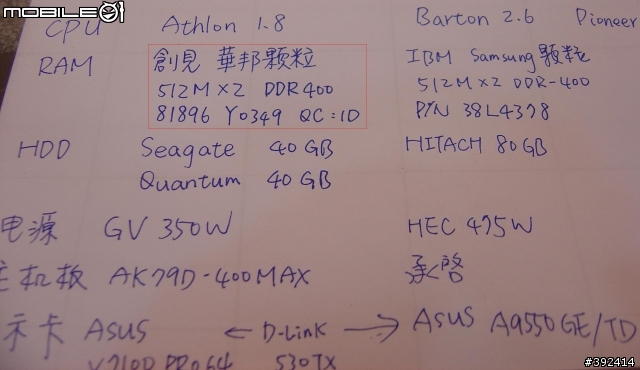 MOBILE01
CPU Athlon 1.8 Barton 2.6 Pioneer
RAM 創見 華邦顆粒 IBM Samsung顆粒
512M×2 DDR400 512M×2 DDR-400
81896 Y0349 QC:1D P/N 38L4378
HDD Seagate 40GB HITACH 80GB
Quantum 40GB
电源 GV 350W HEC 475W
主机板 AK79D-400MAX 承啓
示卡 ASUS ← D-Link → ASUS A9550GE/TD
V9100 PRO64 530TX
#392414